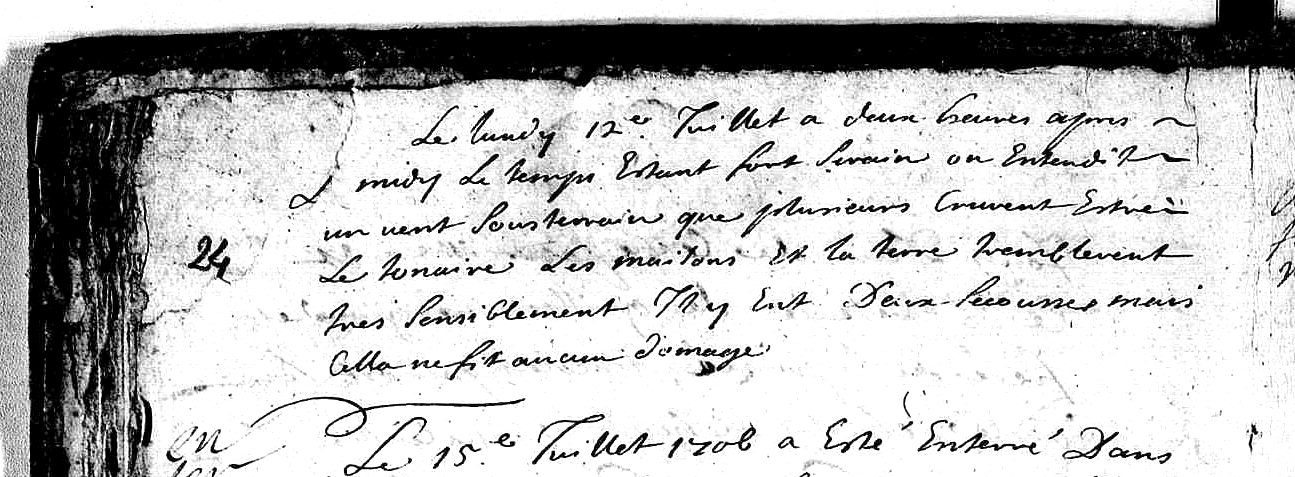 Le lundy 12e. Juillet a deux heures apres
midy Le temps Estant fort Serain on Entendit
un vent Sousterrain que plusieurs Cruvent Estre
24
Le tonaire Les maisons Et la terre tremblerent
tres Sensiblement Il y Eut Deux Secousses mais
Cella ne fit aucun domage
en
Le 15.e Juillet 1706 a Esté Enterré Dans